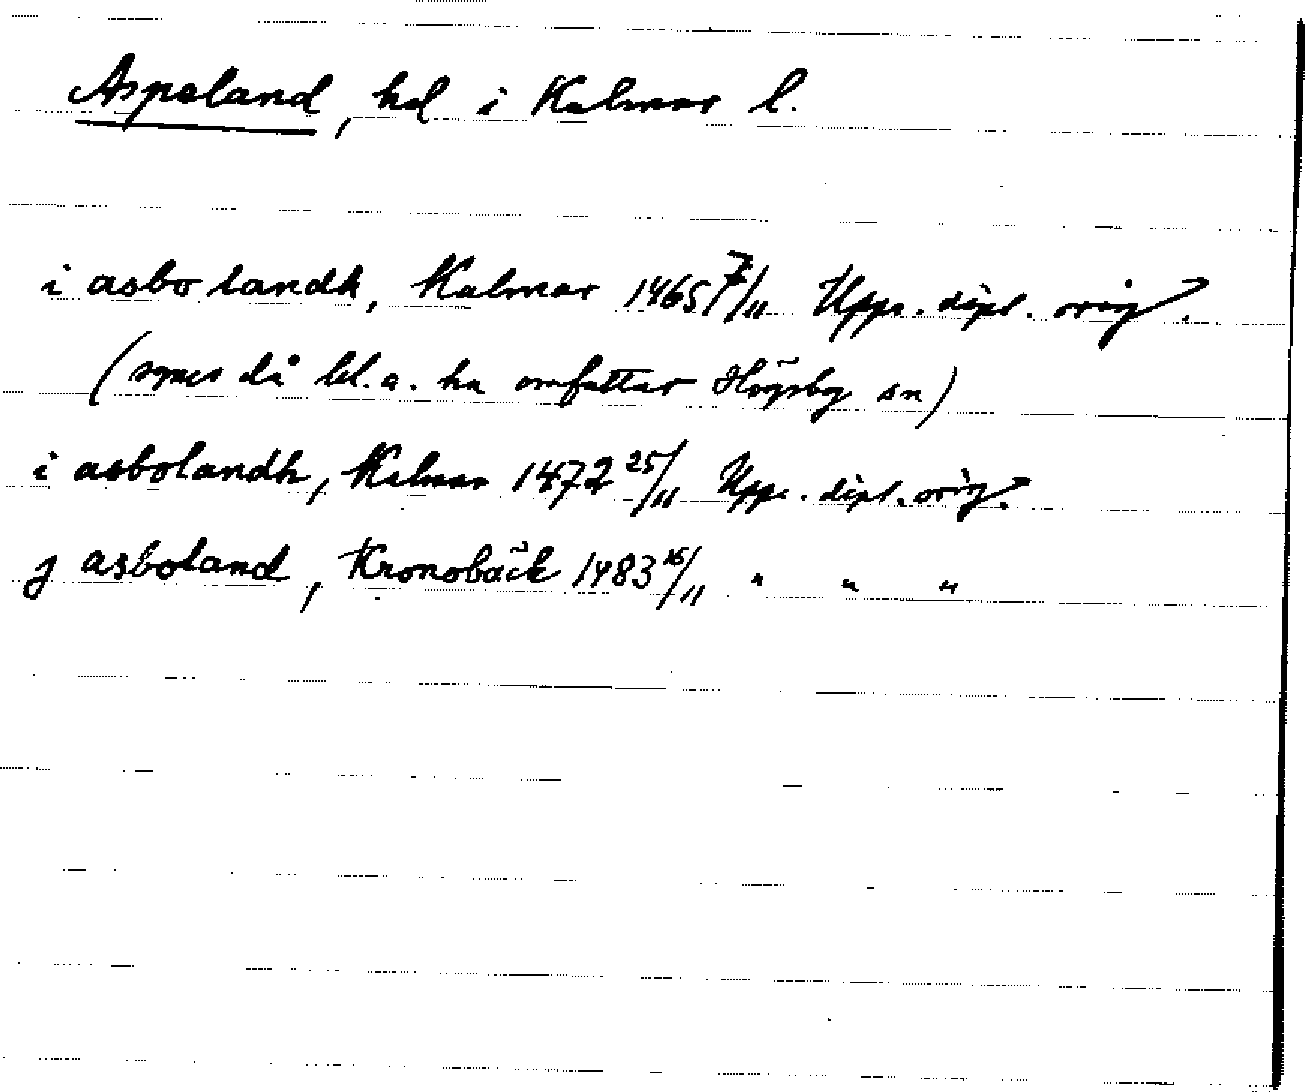 Aspeland, hd i Kalmar l.
i asbo landh, Kalmar 1465 7/11 Upps. dipl. orig.
(synes då bl.a. ha omfattat Högsby sn)
i asbolandh, Kalmar 1472 25/11 Upps. dipl. orig.
j asboland, Kronobäck 1483 16/11 " " "